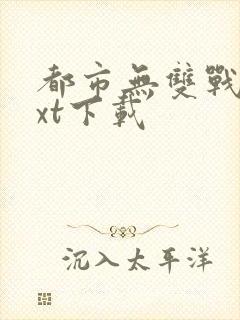 都市無雙戰
xt下載
沉入太平洋